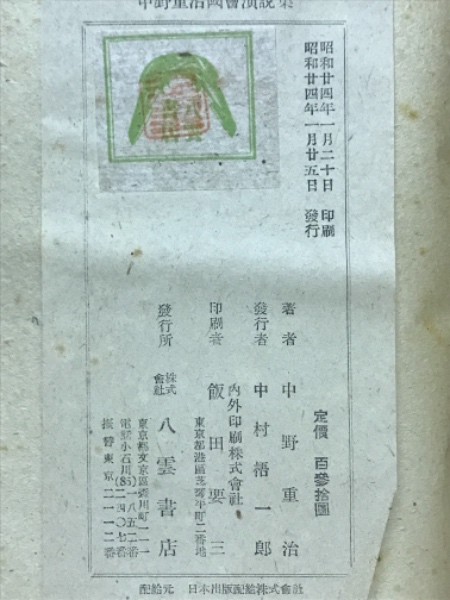 中野重治國會演説集
昭和廿四年一月二十日 印刷
昭和廿四年一月廿五日 發行
定價 百參拾圓
著者 中野重治
發行者 中村梧一郎
内外印刷株式會社
印刷者 飯田要三
東京都港區芝 平町二番地
發行所 株式會社 八雲書店
東京都文京區森川町一一一
電話小石川(85)一八五二番
二四〇七番
振替東京二一一二番
配給元 日本出版配給株式會社